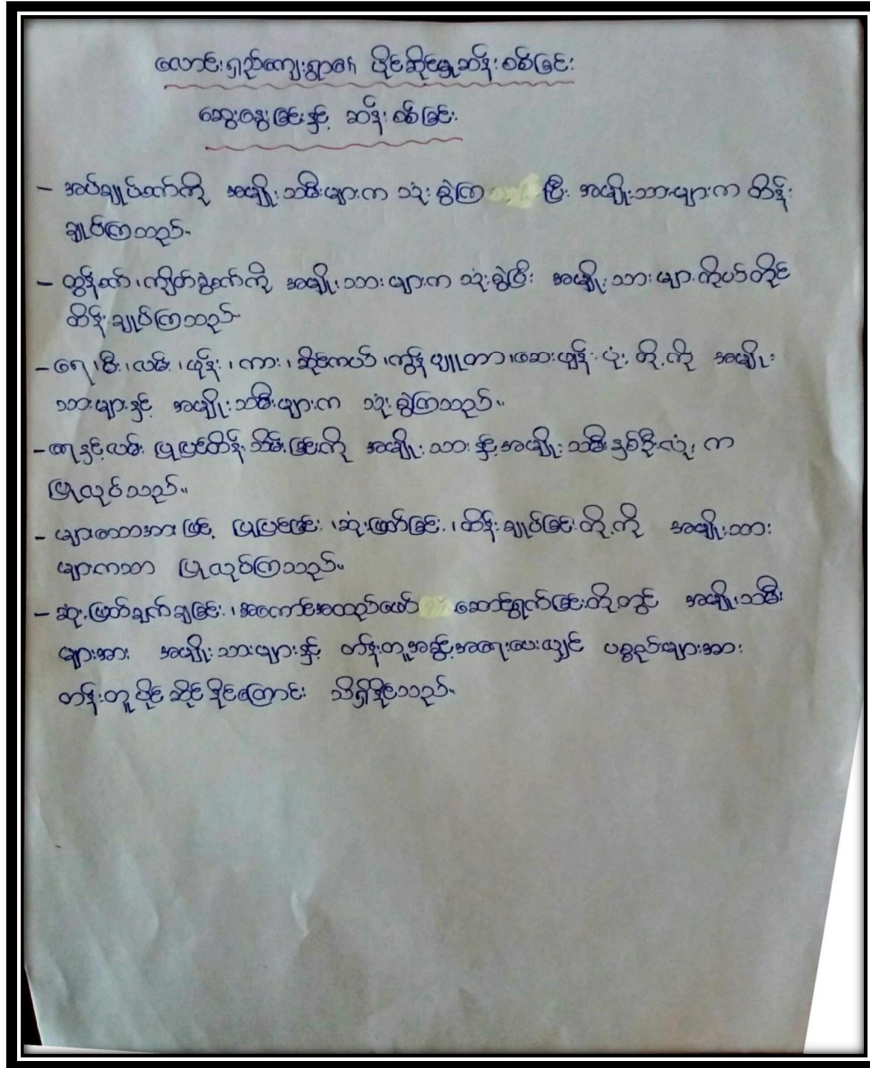 လောင်းရှည်ကျေးရွာ၏ ပိုင်ဆိုင်မှုဆန်းစစ်ခြင်း
ဆွေးနွေးခြင်းနှင့် ဆန်းစစ်ခြင်း
- အပ်ချုပ်စက်ကို အမျိုးသမီးများက သုံးစွဲကြ ပြီး အမျိုးသားများက ထိန်း
ချုပ်ကြသည်။
- ထွန်စက်၊ ကျိတ်ခွဲစက်ကို အမျိုးသားများက သုံးစွဲပြီး အမျိုးသားများကိုယ်တိုင်
ထိန်းချုပ်ကြသည်
- ရေ၊ မီး၊ လမ်း၊ ဖုန်း၊ ကား၊ ဆိုင်ကယ်၊ ကွန်ပျူတာ၊ ဆေးဖျန်းပုံး တို့ကို အမျိုး
သားများနှင့် အမျိုးသမီးများက သုံးစွဲကြသည်။
- ရေနှင့်လမ်း ပြုပြင်ထိန်းသိမ်းခြင်းကို အမျိုးသားနှင့်အမျိုးသမီးနှစ်ဦးလုံးက
ပြုလုပ်သည်။
- များသောအားဖြင့် ပြုပြင်ခြင်း၊ ဆုံးဖြတ်ခြင်း၊ ထိန်းချုပ်ခြင်းတို့ကို အမျိုးသား
များကသာ ပြုလုပ်ကြသည်။
- ဆုံးဖြတ်ချက်ချခြင်း၊ အကောင်အထည်ဖော် ဆောင်ရွက်ခြင်းတို့တွင် အမျိုးသမီး
များအား အမျိုးသားများနှင့် တန်းတူအခွင့်အရေးပေးလျှင် ပစ္စည်းများအား
တန်းတူပိုင်ဆိုင်နိုင်ကြောင်း သိရှိနိုင်သည်။